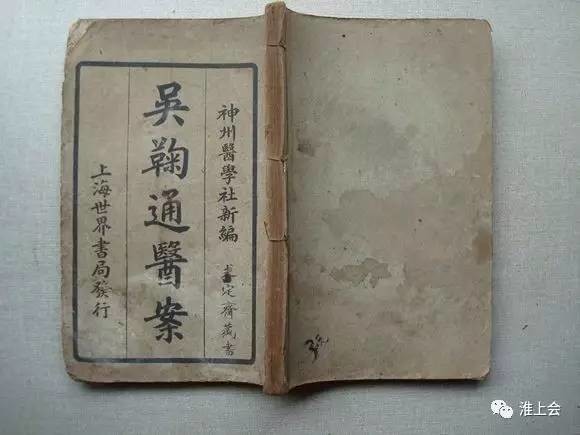 神州醫學社新編
定齋藏書
吳鞠通醫案
上海世界書局發行
淮上会